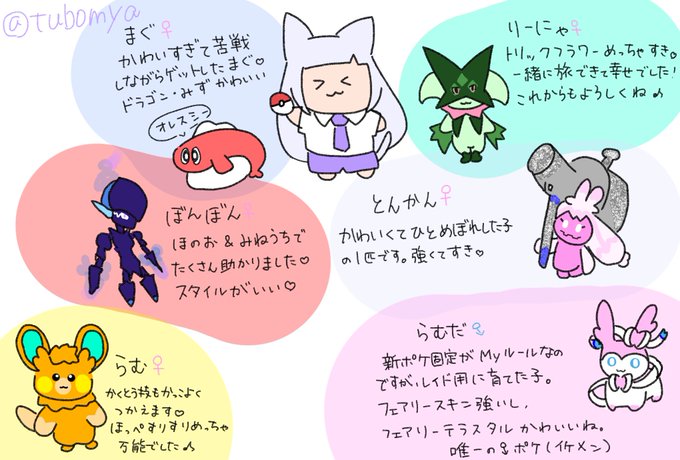 @tubomya
まぐ♀
かわいすぎて苦戦
しながらゲットしたまぐ♡
ドラゴン・みずかわいい
オレスシ〜
りーにゃ♀
トリックフラワーめっちゃすき。
一緒に旅できて幸せでした!
これからもよろしくね♪
ぼんぼん♀
ほのお&みねうちで
たくさん助かりました♡
スタイルがいい♡
とんかん♀
かわいくてひとめぼれした子
の1匹です。強くてすき♡
らむ♀
かくとう技もかっこよく
つかえます♡
ほっぺすりすりめっちゃ
万能でした♪
らむだ♂
新ポケ固定がMyルールなの
ですが、レイド用に育てた子。
フェアリースキン強いし、
フェアリーテラスタルかわいいね。
唯一の♂ポケ(イケメン)